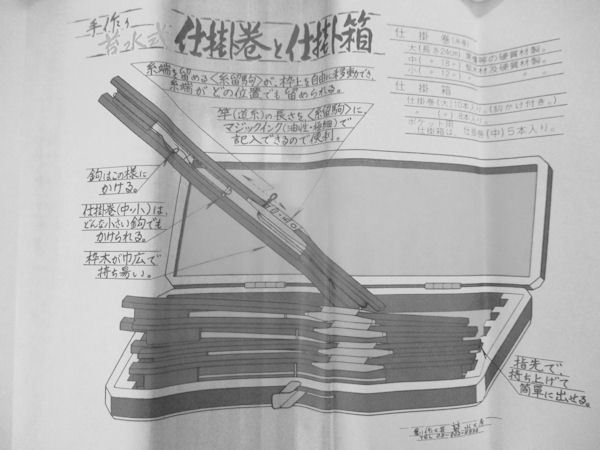 手作り
仕掛巻と仕掛箱
糸端を留める〈糸留駒〉が、枠上を自由に移動でき、
糸端がどの位置でも留められる。
竿(道糸)の長さを〈糸留駒〉に
マジックインク(油性・極細)で
記入できるので便利。
仕掛巻
大(長さ24cm)
中(〃18〃)
小(〃12〃)
仕掛箱
仕掛巻(大)10本入り。(鈎かけ付き。)
ポケット用
仕掛箱は、仕掛巻(中)5本入り。
鈎はこの様に
かける。
仕掛巻(中・小)は、
どんな小さい鈎でも
かけられる。
枠木が巾広で
持ち易い。
指先で、
持ち上げて
簡単に出せる。